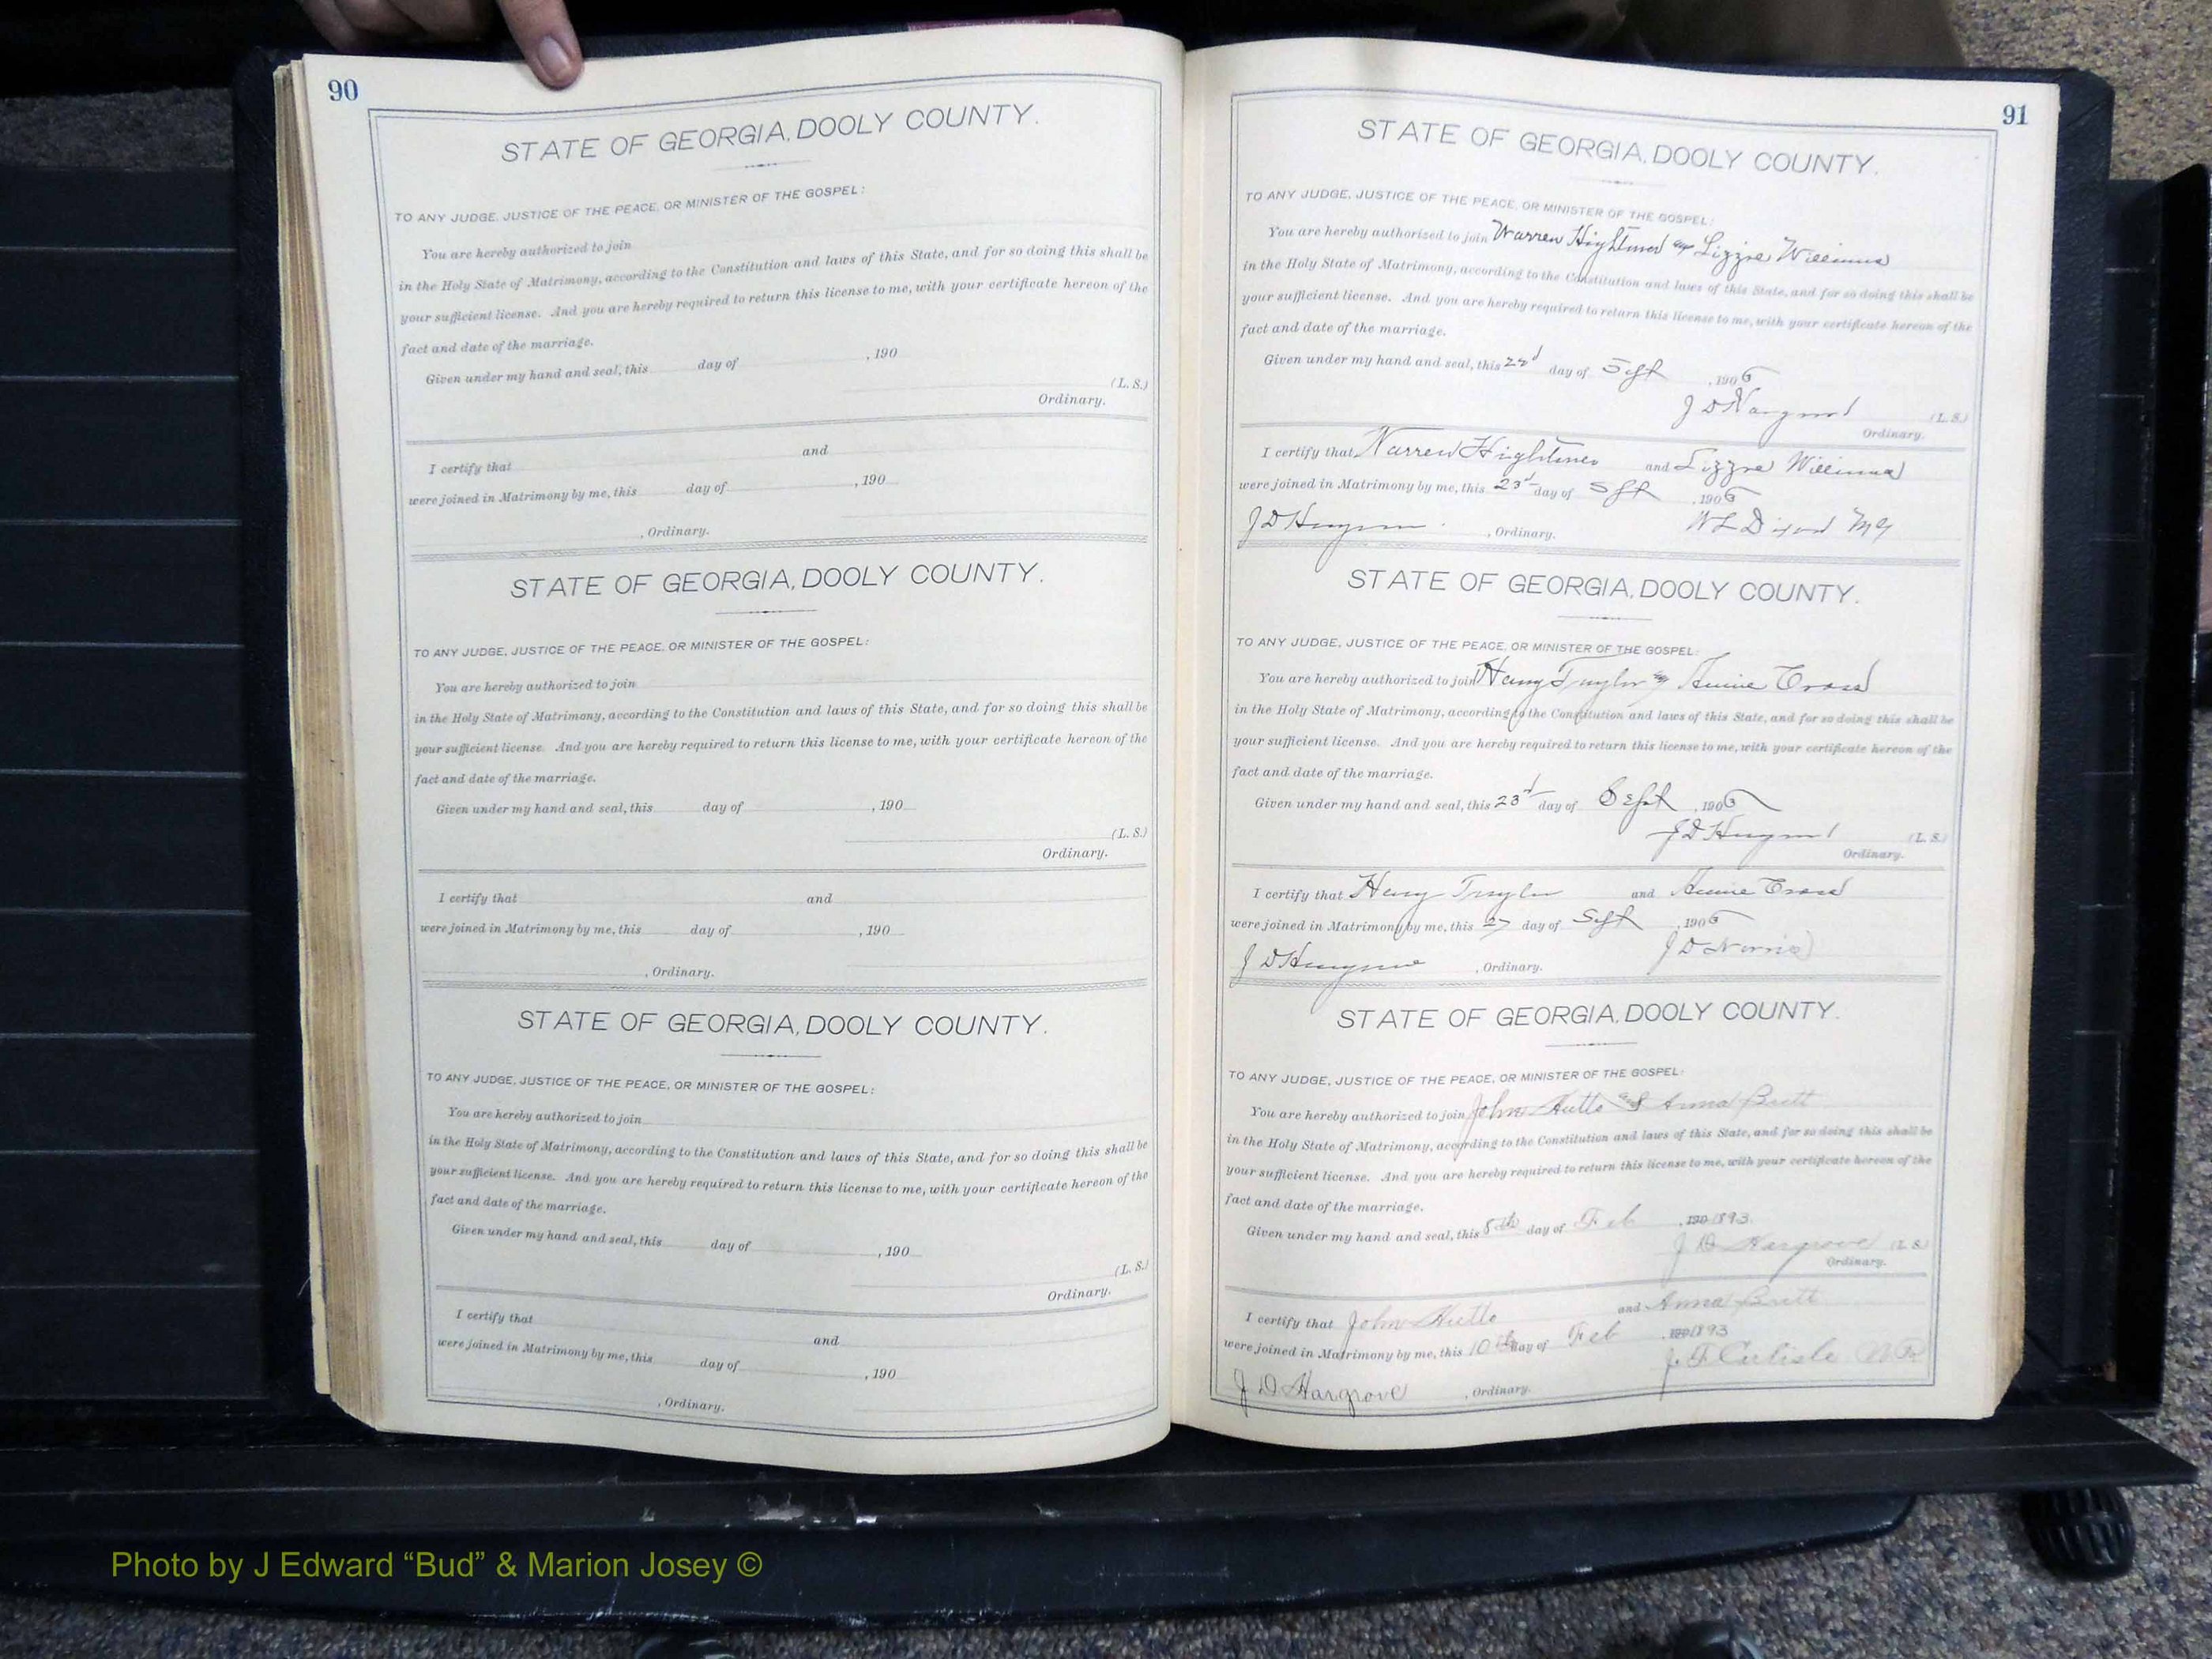 90
STATE OF GEORGIA, DOOLY COUNTY.
TO ANY JUDGE, JUSTICE OF THE PEACE, OR MINISTER OF THE GOSPEL:
You are hereby authorized to join
in the Holy State of Matrimony, according to the Constitution and laws of this State, and for so doing this shall be
your sufficient license. And you are hereby required to return this license to me, with your certificate hereon of the
fact and date of the marriage.
Given under my hand and seal, this day of , 190
(L. S.)
Ordinary.
I certify that and
were joined in Matrimony by me, this day of , 190
, Ordinary.
STATE OF GEORGIA, DOOLY COUNTY.
TO ANY JUDGE, JUSTICE OF THE PEACE, OR MINISTER OF THE GOSPEL:
You are hereby authorized to join
in the Holy State of Matrimony, according to the Constitution and laws of this State, and for so doing this shall be
your sufficient license. And you are hereby required to return this license to me, with your certificate hereon of the
fact and date of the marriage.
Given under my hand and seal, this day of , 190
(L. S.)
Ordinary.
I certify that and
were joined in Matrimony by me, this day of , 190
, Ordinary.
STATE OF GEORGIA, DOOLY COUNTY.
TO ANY JUDGE, JUSTICE OF THE PEACE, OR MINISTER OF THE GOSPEL:
You are hereby authorized to join
in the Holy State of Matrimony, according to the Constitution and laws of this State, and for so doing this shall be
your sufficient license. And you are hereby required to return this license to me, with your certificate hereon of the
fact and date of the marriage.
Given under my hand and seal, this day of , 190
(L. S.)
Ordinary.
I certify that and
were joined in Matrimony by me, this day of , 190
, Ordinary.
91
STATE OF GEORGIA, DOOLY COUNTY.
TO ANY JUDGE, JUSTICE OF THE PEACE, OR MINISTER OF THE GOSPEL:
You are hereby authorized to join Warren Hightower & Lizzie Williams
in the Holy State of Matrimony, according to the Constitution and laws of this State, and for so doing this shall be
your sufficient license. And you are hereby required to return this license to me, with your certificate hereon of the
fact and date of the marriage.
Given under my hand and seal, this 22d day of Sept , 1906
J D Hargrove (L. S.)
Ordinary.
I certify that Warren Hightower and Lizzie Williams
were joined in Matrimony by me, this 23d day of Sept , 1906
J D Hargrove , Ordinary. W L Dixon MG
STATE OF GEORGIA, DOOLY COUNTY.
TO ANY JUDGE, JUSTICE OF THE PEACE, OR MINISTER OF THE GOSPEL:
You are hereby authorized to join Henry Taylor & Annie Cross
in the Holy State of Matrimony, according to the Constitution and laws of this State, and for so doing this shall be
your sufficient license. And you are hereby required to return this license to me, with your certificate hereon of the
fact and date of the marriage.
Given under my hand and seal, this 23d day of Sept , 1906
J D Hargrove (L. S.)
Ordinary.
I certify that Henry Taylor and Annie Cross
were joined in Matrimony by me, this 27 day of Sept , 1906
J D Norris
J D Hargrove , Ordinary.
STATE OF GEORGIA, DOOLY COUNTY.
TO ANY JUDGE, JUSTICE OF THE PEACE, OR MINISTER OF THE GOSPEL:
You are hereby authorized to join John Hutto and Anna Britt
in the Holy State of Matrimony, according to the Constitution and laws of this State, and for so doing this shall be
your sufficient license. And you are hereby required to return this license to me, with your certificate hereon of the
fact and date of the marriage.
Given under my hand and seal, this 8th day of Feb , 190 1893
J D Hargrove (L. S.)
Ordinary.
I certify that John Hutto and Anna Britt
were joined in Matrimony by me, this 10th day of Feb , 190 1893
J. F. Carlisle
J D Hargrove , Ordinary.
Photo by J Edward “Bud” & Marion Josey ©